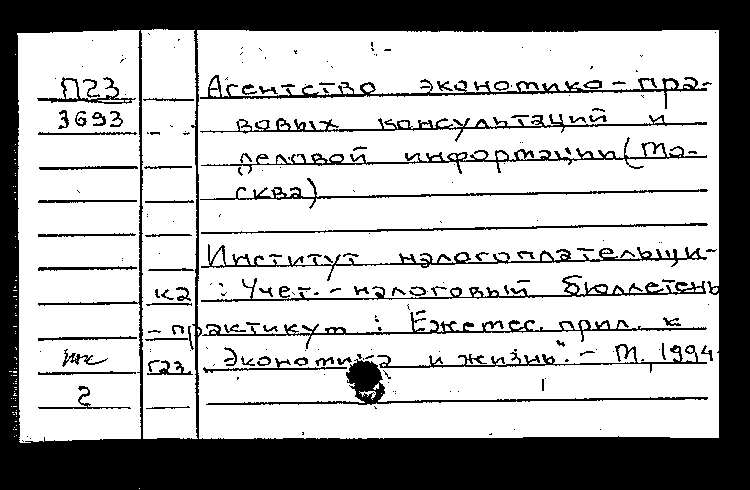 П23 Агентство экономико-пра-
3693 вовых консультаций и
деловой информации (Мо-
сква)
Институт налогоплательщи-
ка : Учет.-налоговый бюллетень
-практикум : Ежемес. прил. к
газ. "Экономика и жизнь". - М., 1994-
2